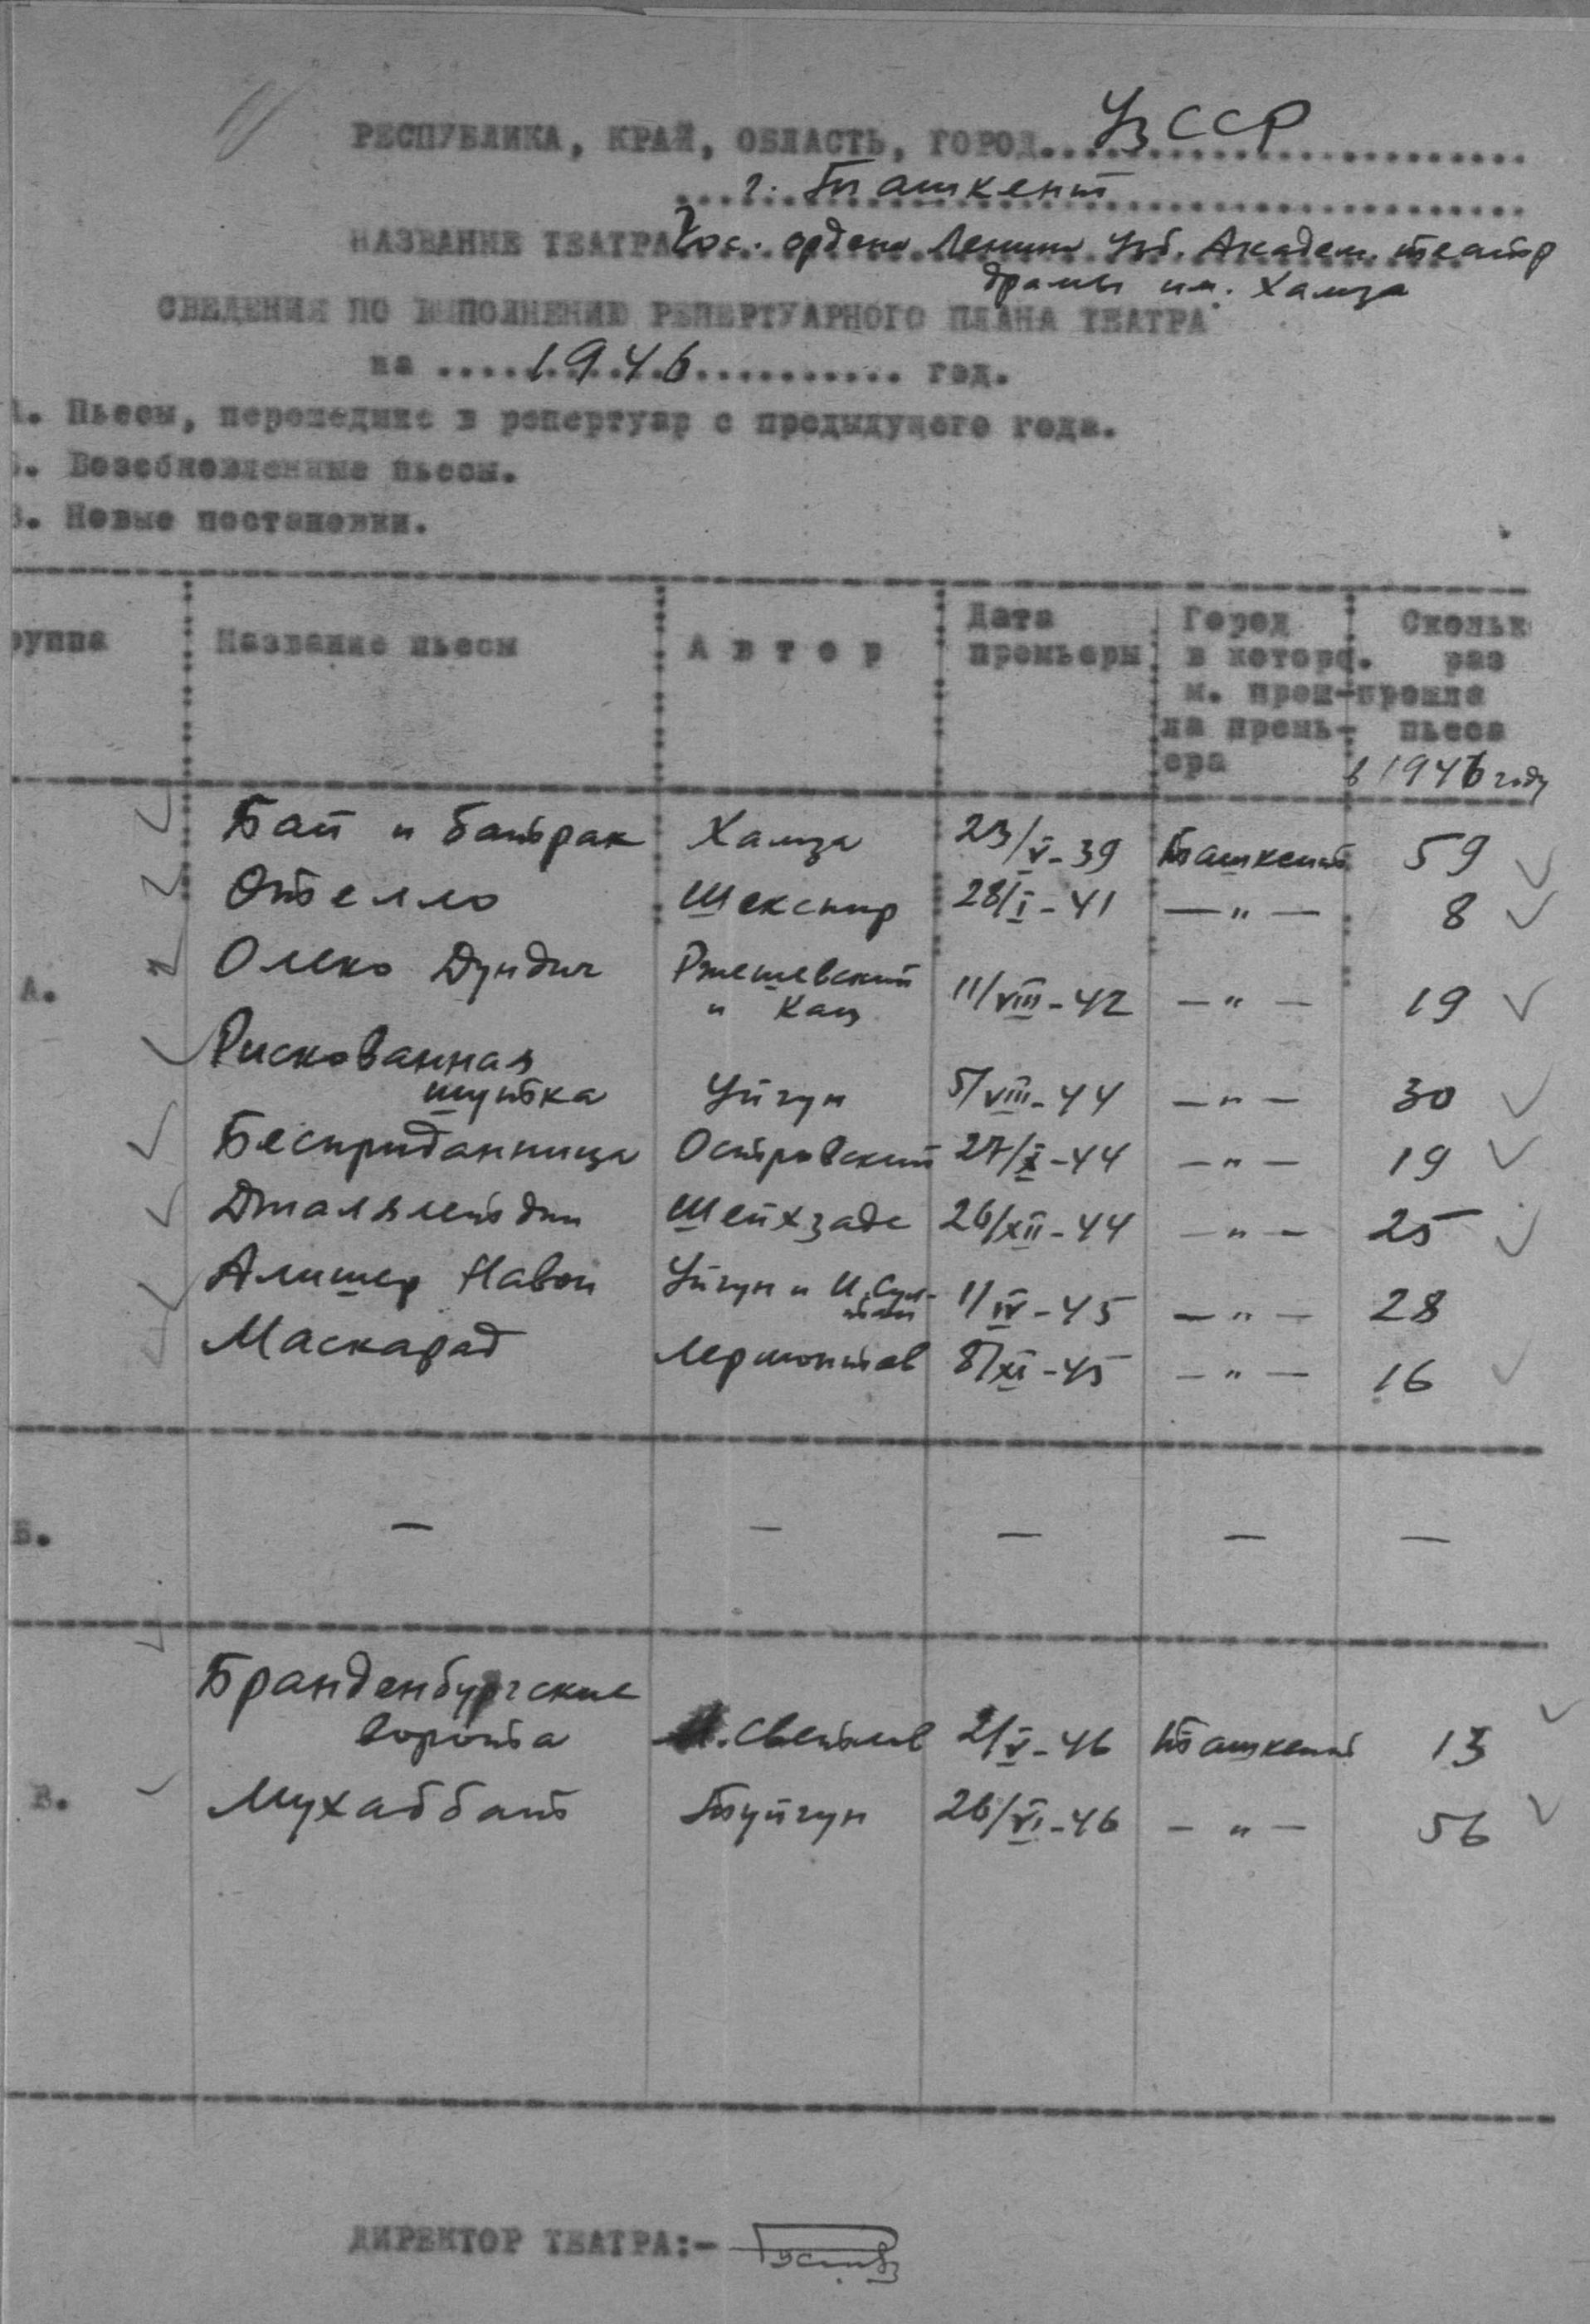 РЕСПУБЛИКА, КРАЙ, ОБЛАСТЬ, ГОРОД... УзССР
г. Ташкент
НАЗВАНИЕ ТЕАТРА Гос. ордена Ленина Узб. Академ. театр
драмы им. Хамза
СВЕДЕНИЯ ПО ВЫПОЛНЕНИЮ РЕПЕРТУАРНОГО ПЛАНА ТЕАТРА
на ....1946.... год.
А. Пьесы, перешедшие в репертуар с предыдущего года.
Б. Возобновленные пьесы.
В. Новые постановки.
руппа Название пьесы Автор Дата премьеры Город в которо. м. прош-ла премь-ера Скольк раз прошла пьеса в 1946 году
Бай и батрак Хамза 23/V-39 Ташкент 59
Отелло Шекспир 28/I-41 —"— 8
А. Олеко Дундич Ржешевский и Кац 11/VIII-42 —"— 19
Рискованная
шутка Уйгун 5/VIII-44 —"— 30
Бесприданница Островский 27/X-44 —"— 19
Джалялетдин Шейхзаде 26/XII-44 —"— 25
Алишер Навои Уйгун и И. Сул-тан 1/IV-45 —"— 28
Маскарад Лермонтов 8/XI-45 —"— 16
Б. — — — — —
Бранденбургские
ворота М. Светлов 2/V-46 Ташкент 13
В. Мухаббат Туйгун 26/VI-46 —"— 56
ДИРЕКТОР ТЕАТРА:-